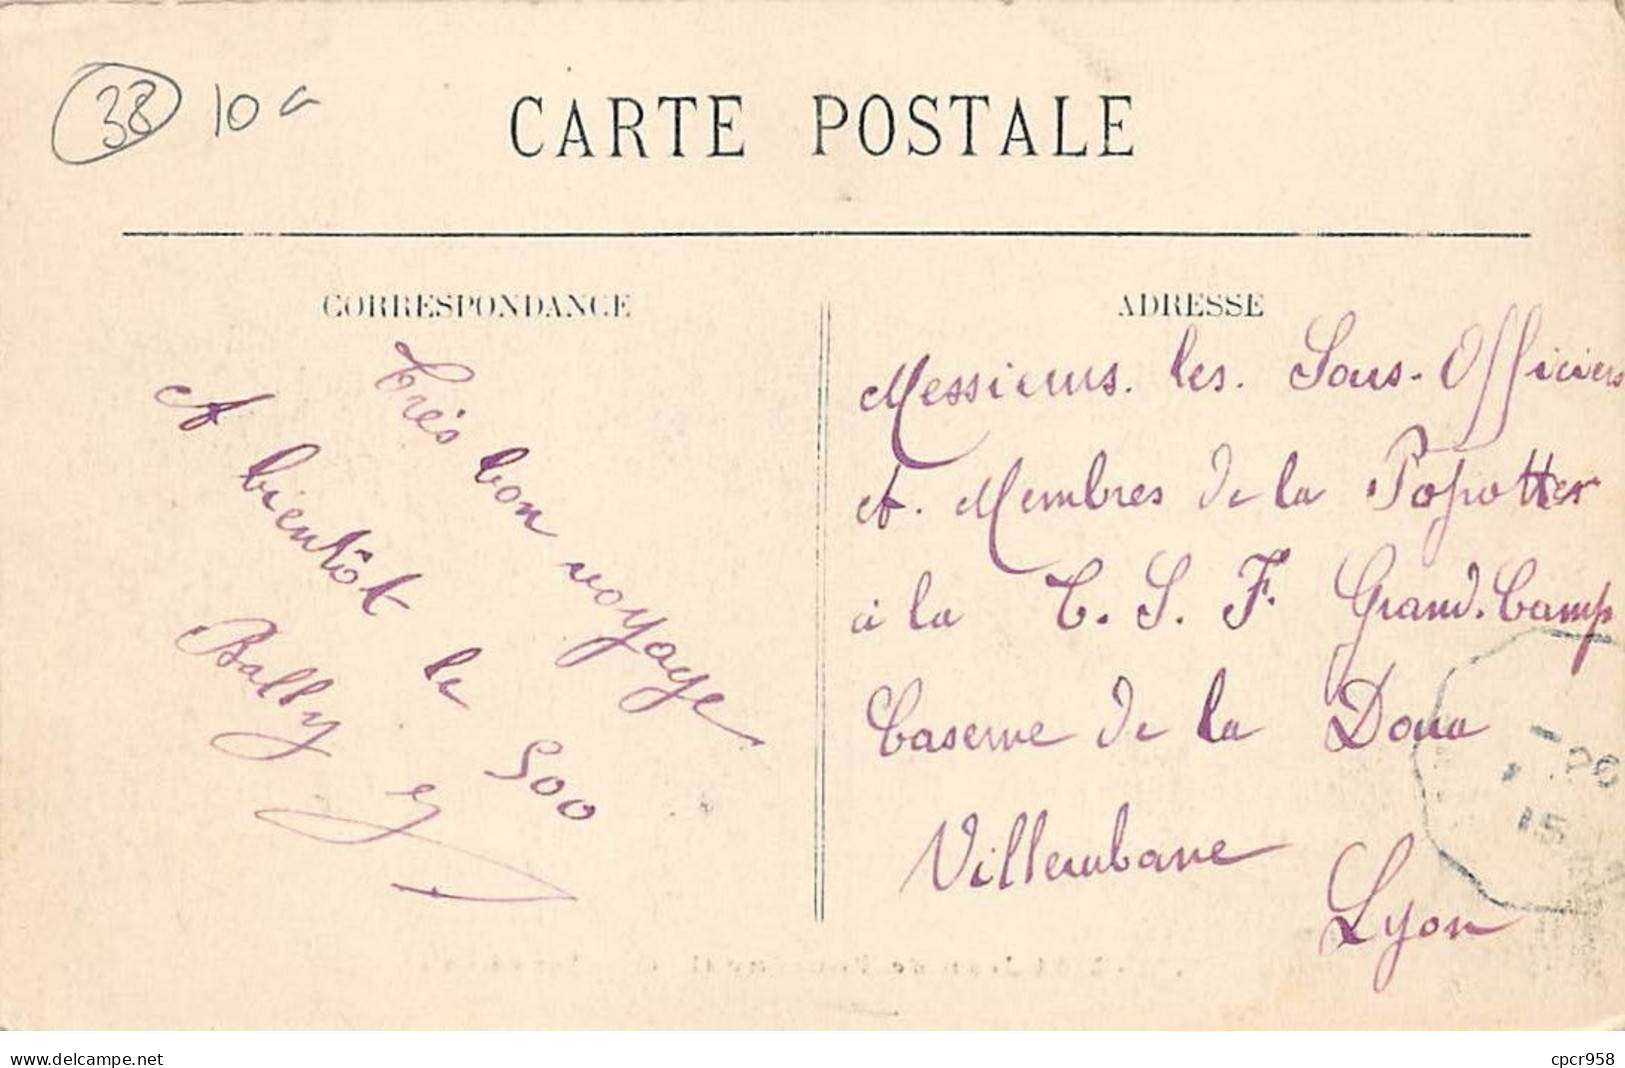 38 10
CARTE POSTALE
CORRESPONDANCE
Très bon voyage
A bientôt le 500
Bally
ADRESSE
Messieurs. les. Sous-Officiers
et. Membres de la Popotte
à la T. S. F. Grand-Camp
Caserne de la Doua
Villeurbane
Lyon
15
www.delcampe.net
cpcr958